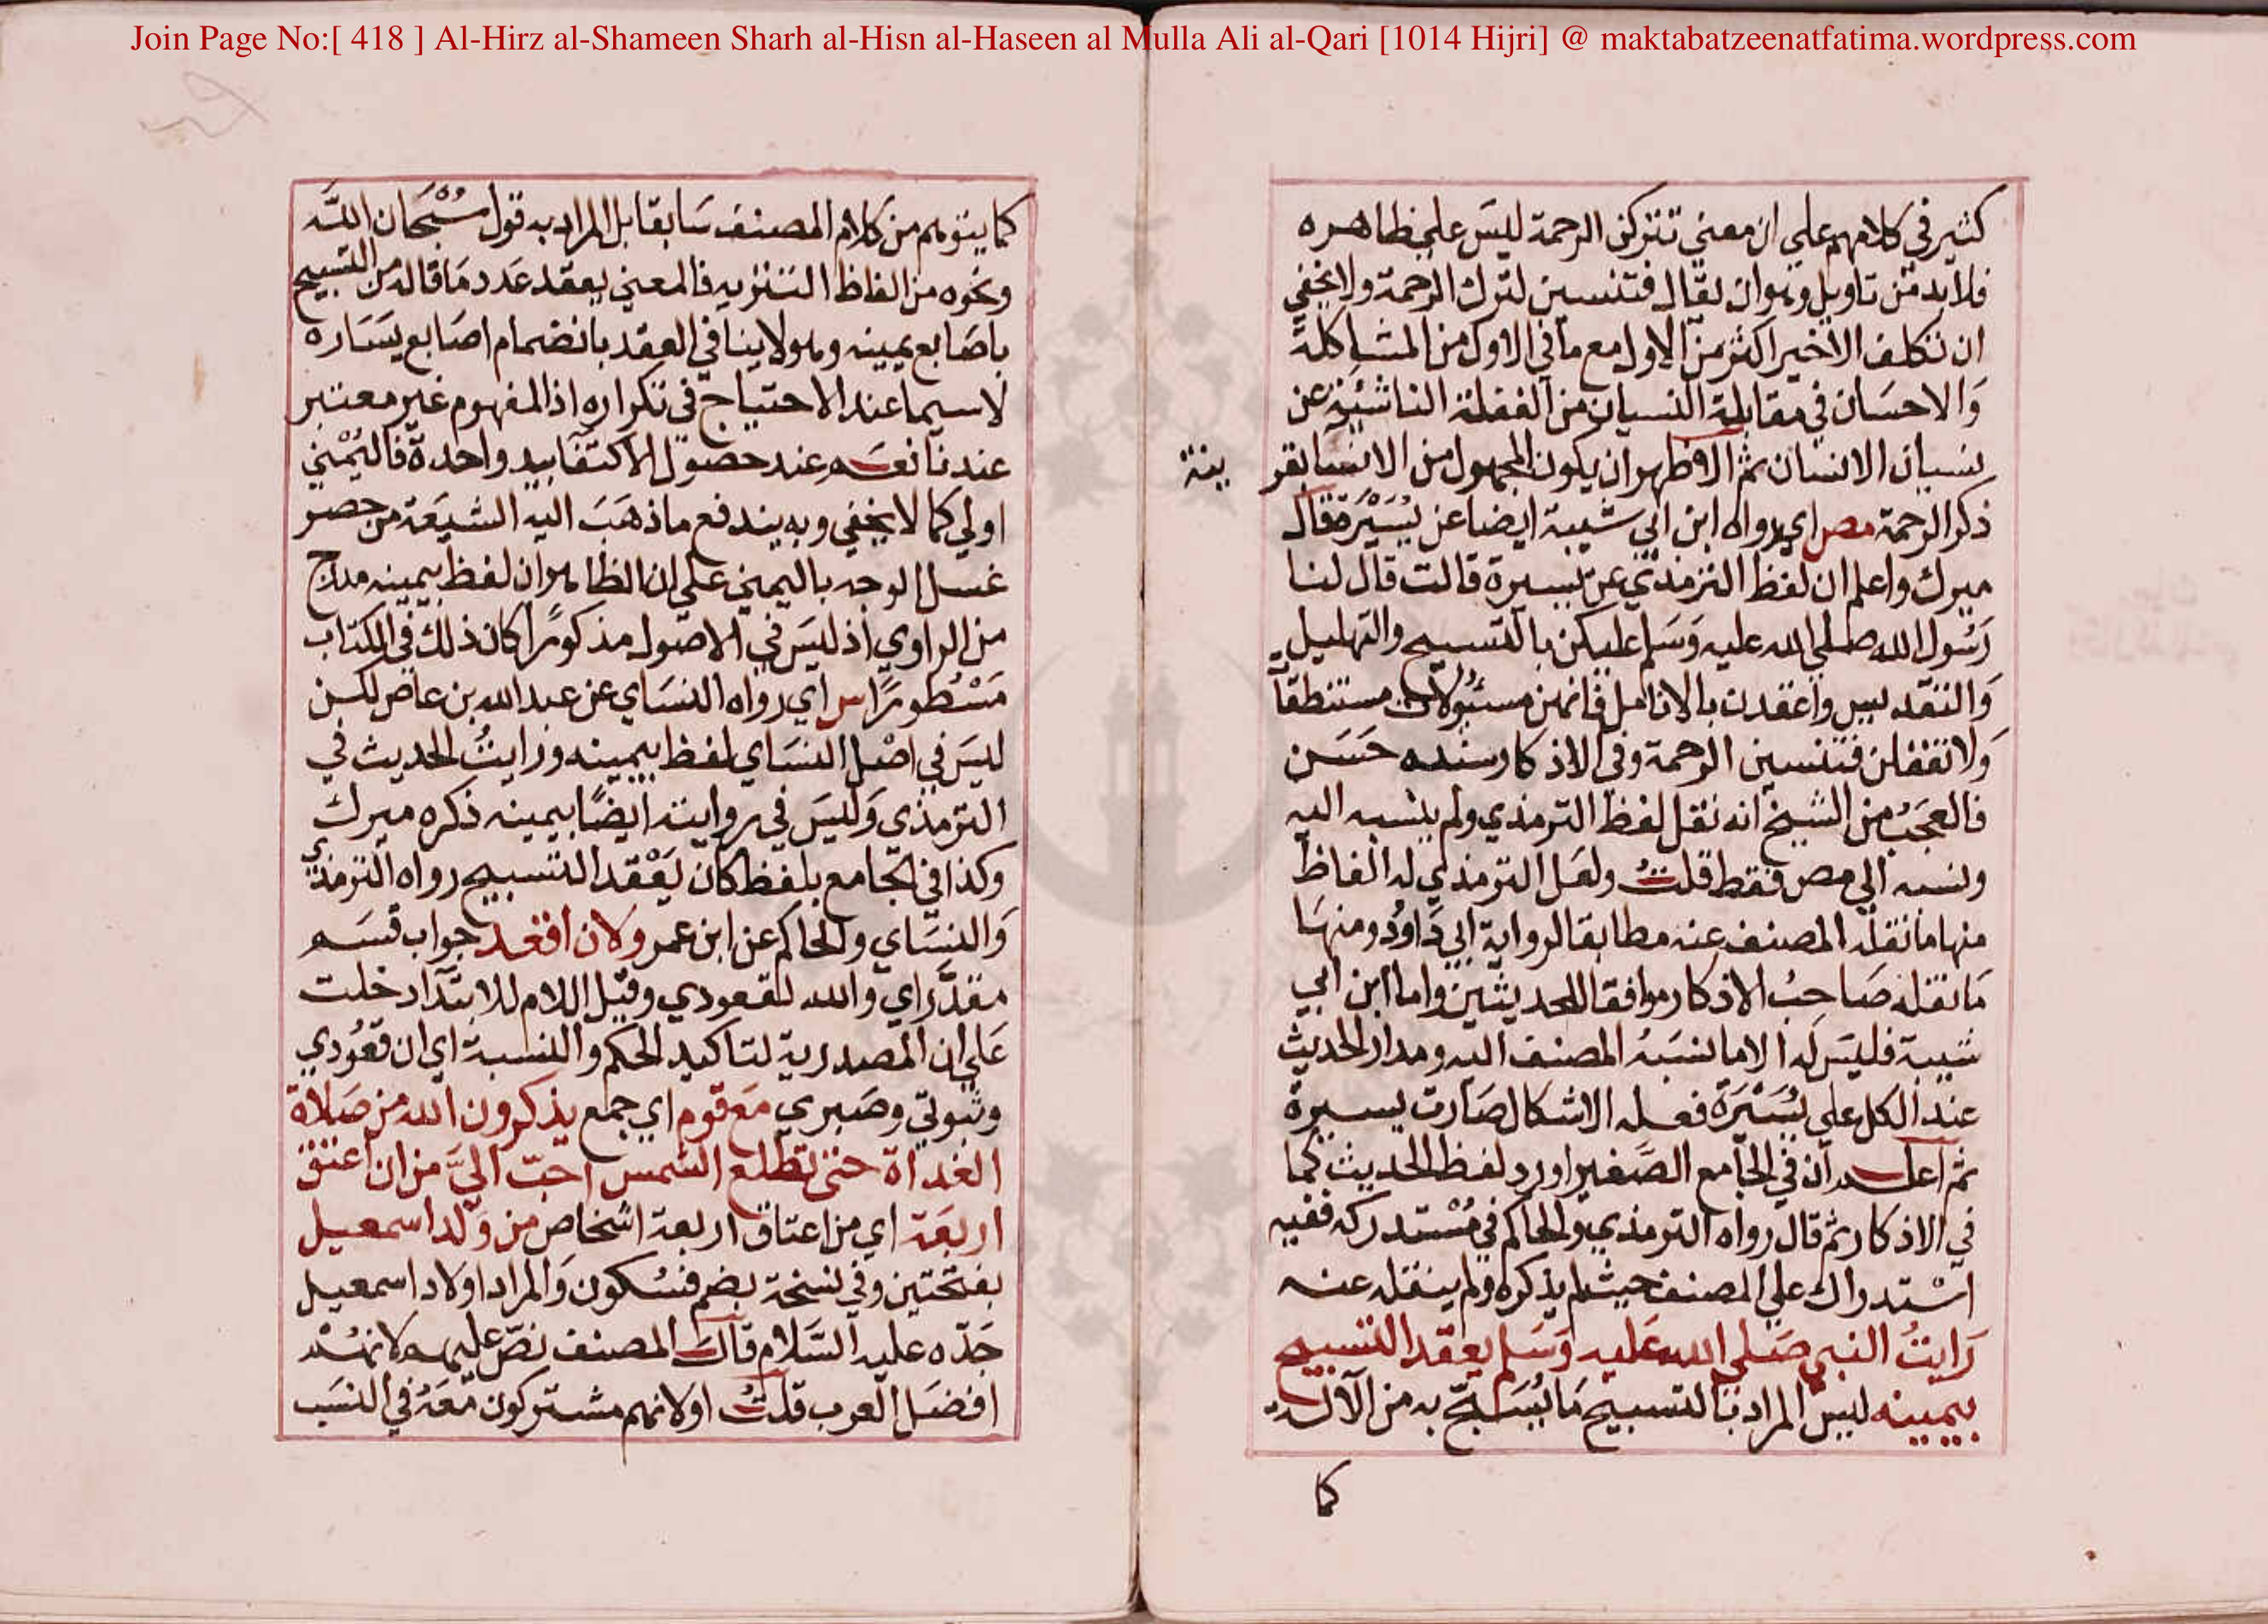 Join Page No:[ 418 ] Al-Hirz al-Shameen Sharh al-Hisn al-Haseen al Mulla Ali al-Qari [1014 Hijri] @ maktabatzeenatfatima.wordpress.com
كثير في كلامهم علي ان معني تتركن الرحمة ليس علي ظاهره
فلا بد من تاويل وهو ان يقال فتنسين لترك الرحمة ولا يخفي
ان تكلف الاخير اكثر من الاول مع ما في الاول من المشاكلة
والاحسان في مقابلة النسيان من الغفلة الناشئة عن
نسيان الانسان ثم الاظهر ان يكون المجهول من الانسا بقر ينة
ذكر الرحمة مص اي رواه ابن ابي شيبة ايضا عن يُسَيْرَة قال
ميرك واعلم ان لفظ الترمذي عن يسيرة قالت قال لنا
رسول الله صلي الله عليه وسلم عليكن بالتسبيح والتهليل
والتقديس واعقدن بالانامل فانهن مسئولات مستنطقا
ولا تغفلن فتنسين الرحمة وفي الاذكار سنده حسن
فالعجب من الشيخ انه نقل لفظ الترمذي ولم ينسبه اليه
ونسبه الي مص فقط قلت ولعل الترمذي له الفاظ
منها ما نقله المصنف عنه مطابقا لرواية ابي داود ومنها
ما نقله صاحب الاذكار موافقا للحديثين واما ابن ابي
شيبة فليس له الا ما نسبه المصنف اليه ومدار الحديث
عند الكل علي يُسَيْرَة فعله الاشكال صارت يسيرة
ثم اعلم ان في الجامع الصغير اورد لفظ الحديث كما
في الاذكار ثم قال رواه الترمذي والحاكم في مستدركه ففيه
استدراك علي المصنف حيث لم يذكره ولم ينقله عنه
رايت النبي صلي الله عليه وسلم يعقد التسبيح
بيمينه ليس المراد بالتسبيح ما يُسَبَّح به من الآلة
كما
كما يتوهم من كلام المصنف سابقا بل المراد به قول سُبْحَان الله
ونحوه من الفاظ التنزيه فالمعني يعقد عدد ما قاله من التسبيح
باصابع يمينه وهو لا ينافي العقد بانضمام اصابع يساره
لا سيما عند الاحتياج في تكراره اذ المفهوم غير معتبر
عندنا نعم عند حصول الاكتفا بيد واحدة فاليُمْني
اولي كما لا يخفي وبه يندفع ما ذهب اليه الشيعة من حصر
غسل الوجه باليمني علي ان الظاهر ان لفظ بيمينه مدرج
من الراوي اذ ليس في الاصول مذكورا كان ذلك في الكتاب
مَسْطورًا س اي رواه النساي عن عبد الله بن عاص لكن
ليس في اصل النساي لفظ بيمينه ورايت الحديث في
الترمذي وليس في روايته ايضًا بيمينه ذكره ميرك
وكذا في الجامع بلفظ كان يَعْقد التسبيح رواه الترمذي
والنساي والحاكم عن ابن عمر ولان اقعد جواب قسم
مقدَّر اي والله لقعودي وقيل اللام للابتدآ دخلت
علي ان المصدرية لتاكيد الحكم والنسبة اي ان قعودي
وثبوتي وصبري مع قوم اي جمع يذكرون الله من صلاة
الغداة حتي تطلع الشمس احب اليّ من ان اعتق
اربعة اي من اعتاق اربعة اشخاص من ولد اسمعيل
بفتحتين وفي نسخة بضم فسكون والمراد اولاد اسمعيل
جدّه عليه السلام قال المصنف نصّ عليهم لانهم
افضل العرب قلت اولانهم مشتركون معه في النسب